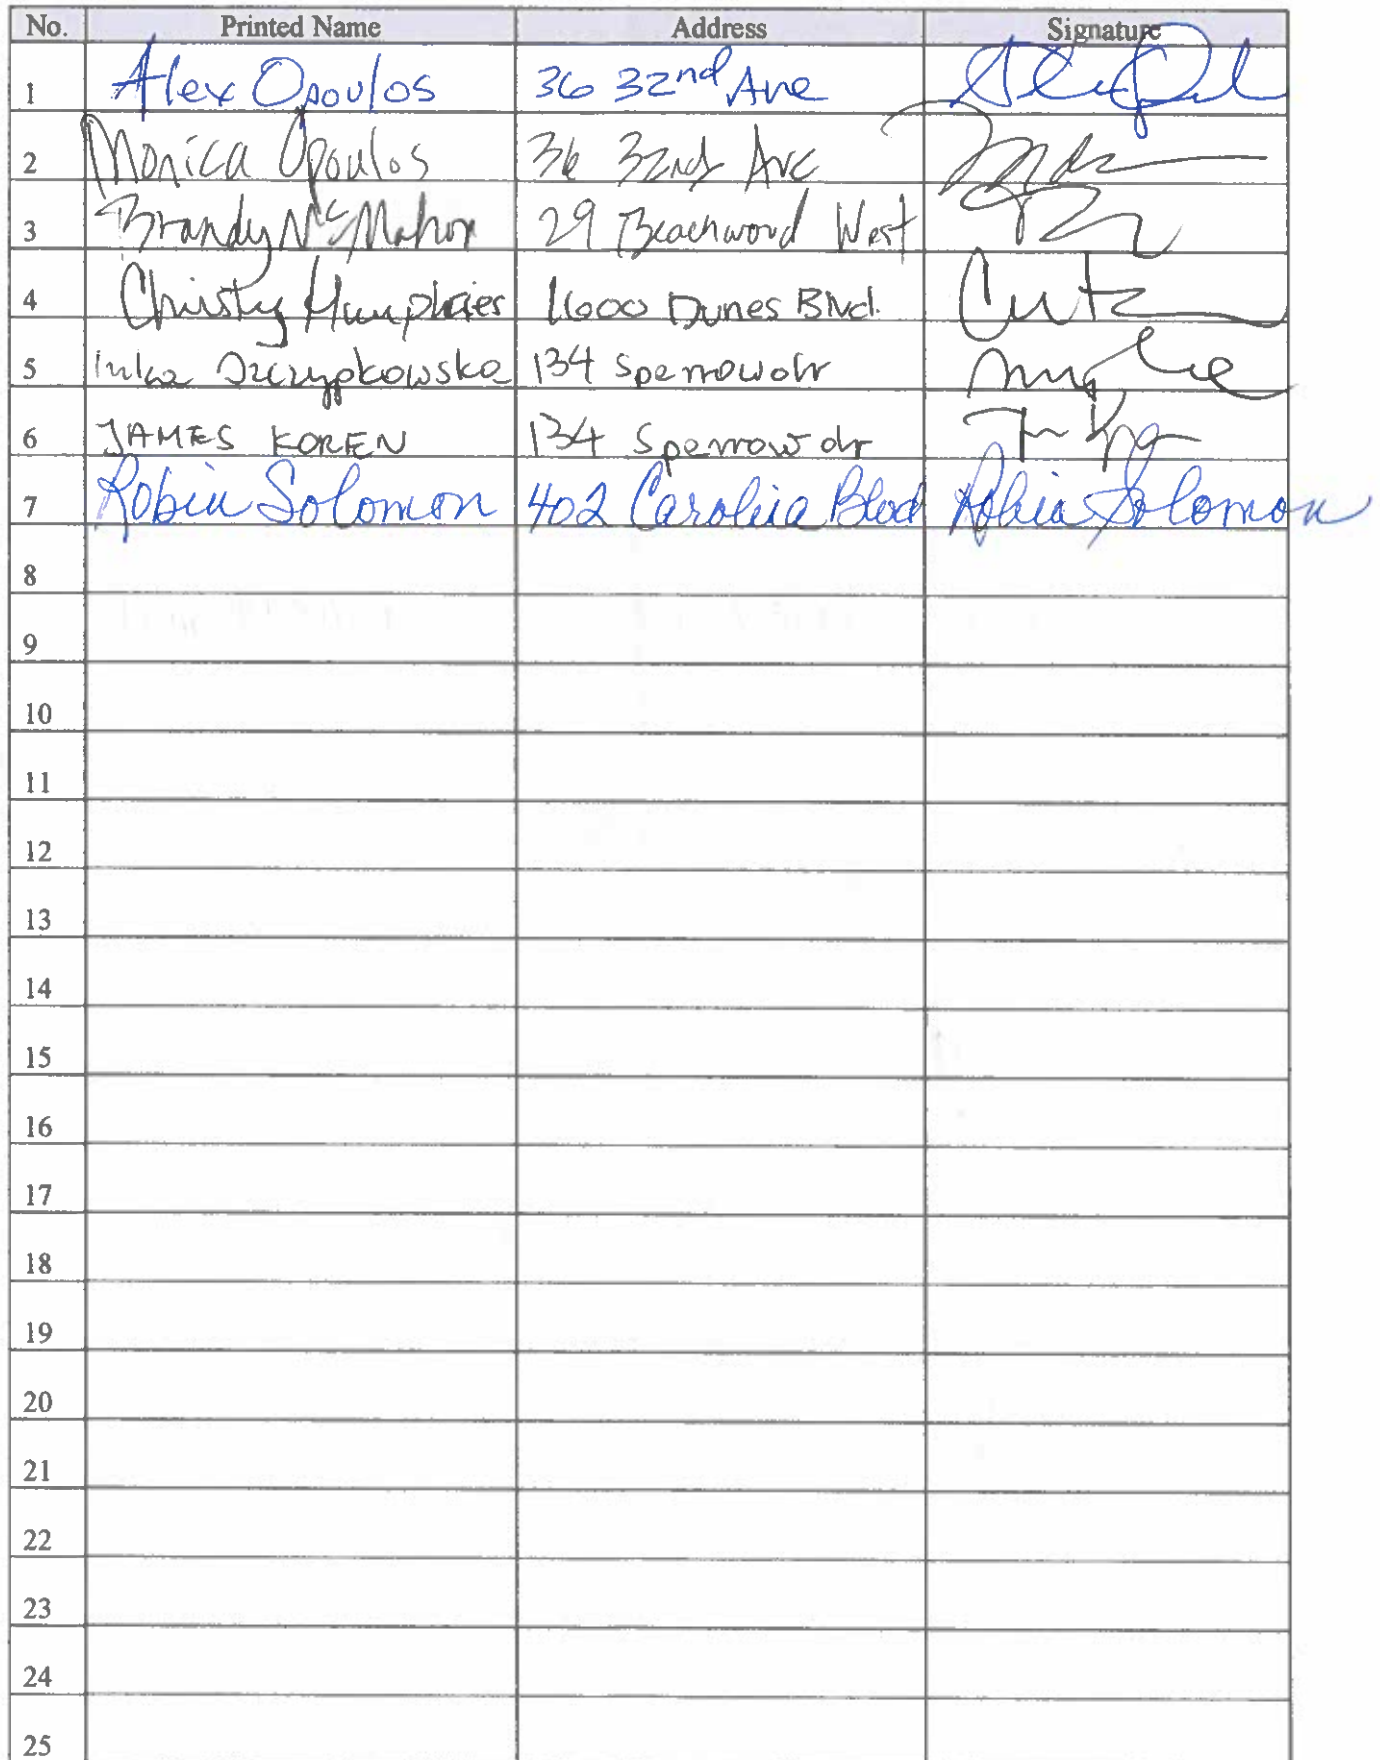 No. Printed Name Address Signature
1 Alex Opoulos 36 32nd Ave
2 Monica Opoulos 36 32nd Ave
3 Brandy McMahon 29 Beachwood West
4 Christy Humphries 1600 Dunes Blvd.
5 134 Sparrow dr
6 JAMES KOREN 134 Sparrow dr
7 Robin Solomon 402 Carolina Blvd Robin Solomon
8
9
10
11
12
13
14
15
16
17
18
19
20
21
22
23
24
25